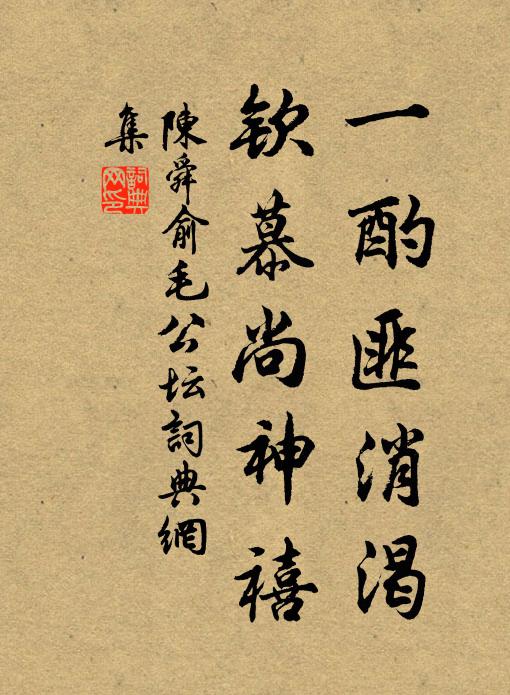 一酌匪消渴
欽慕尚神禧
陳舜俞毛公坛詞典網
集
詞典
网印